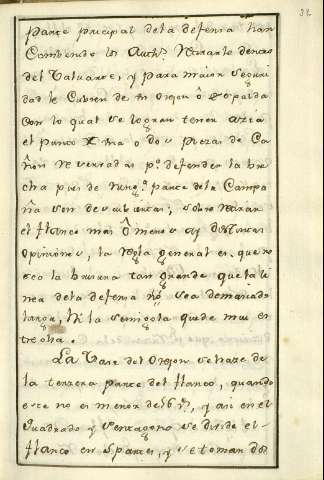 32
parte principal de la defensa han
Combenido los Auth.s retirarle dentro
del Valuarte, y para maior seguri
dad le Cubren de un Orejon ô Espalda
con lo qual se logran tener azia
el punto X una o dos piezas de Ca
ñon reservadas p.a defender la bre
cha pues de ning.a parte de la Campa
ña son descubiertas; sobre retirar
el flanco mas ô menos ay distintas
opiniones, la regla general es, que no
sea la hunura tan grande que la li
nea de la defensa no sea demaciado
larga, Ni la semigola quede mui es
trecha.
La Vase del Orejon se haze de
la tercera parte del flanco, quando
este no es menor de 16 r.s, y asi en el
Quadrado y Pentagono se divide el
flanco en 5 partes, y se toman dos